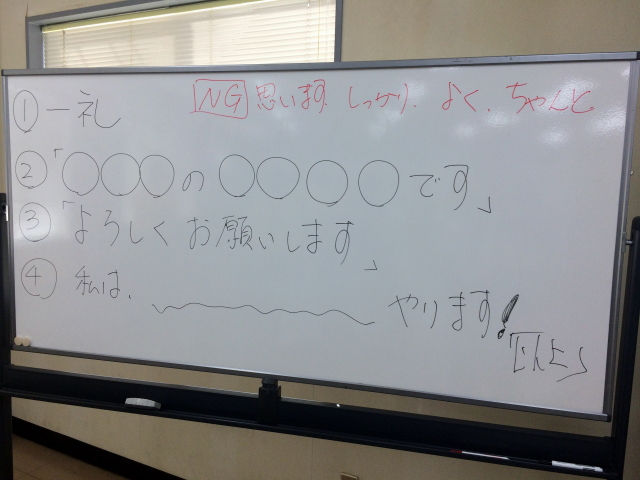 NG 思います. しっかり. よく. ちゃんと
① 一礼
② 「〇〇〇の 〇〇〇〇です」
③ 「よろしくお願いします」
④ 私は、 やります!